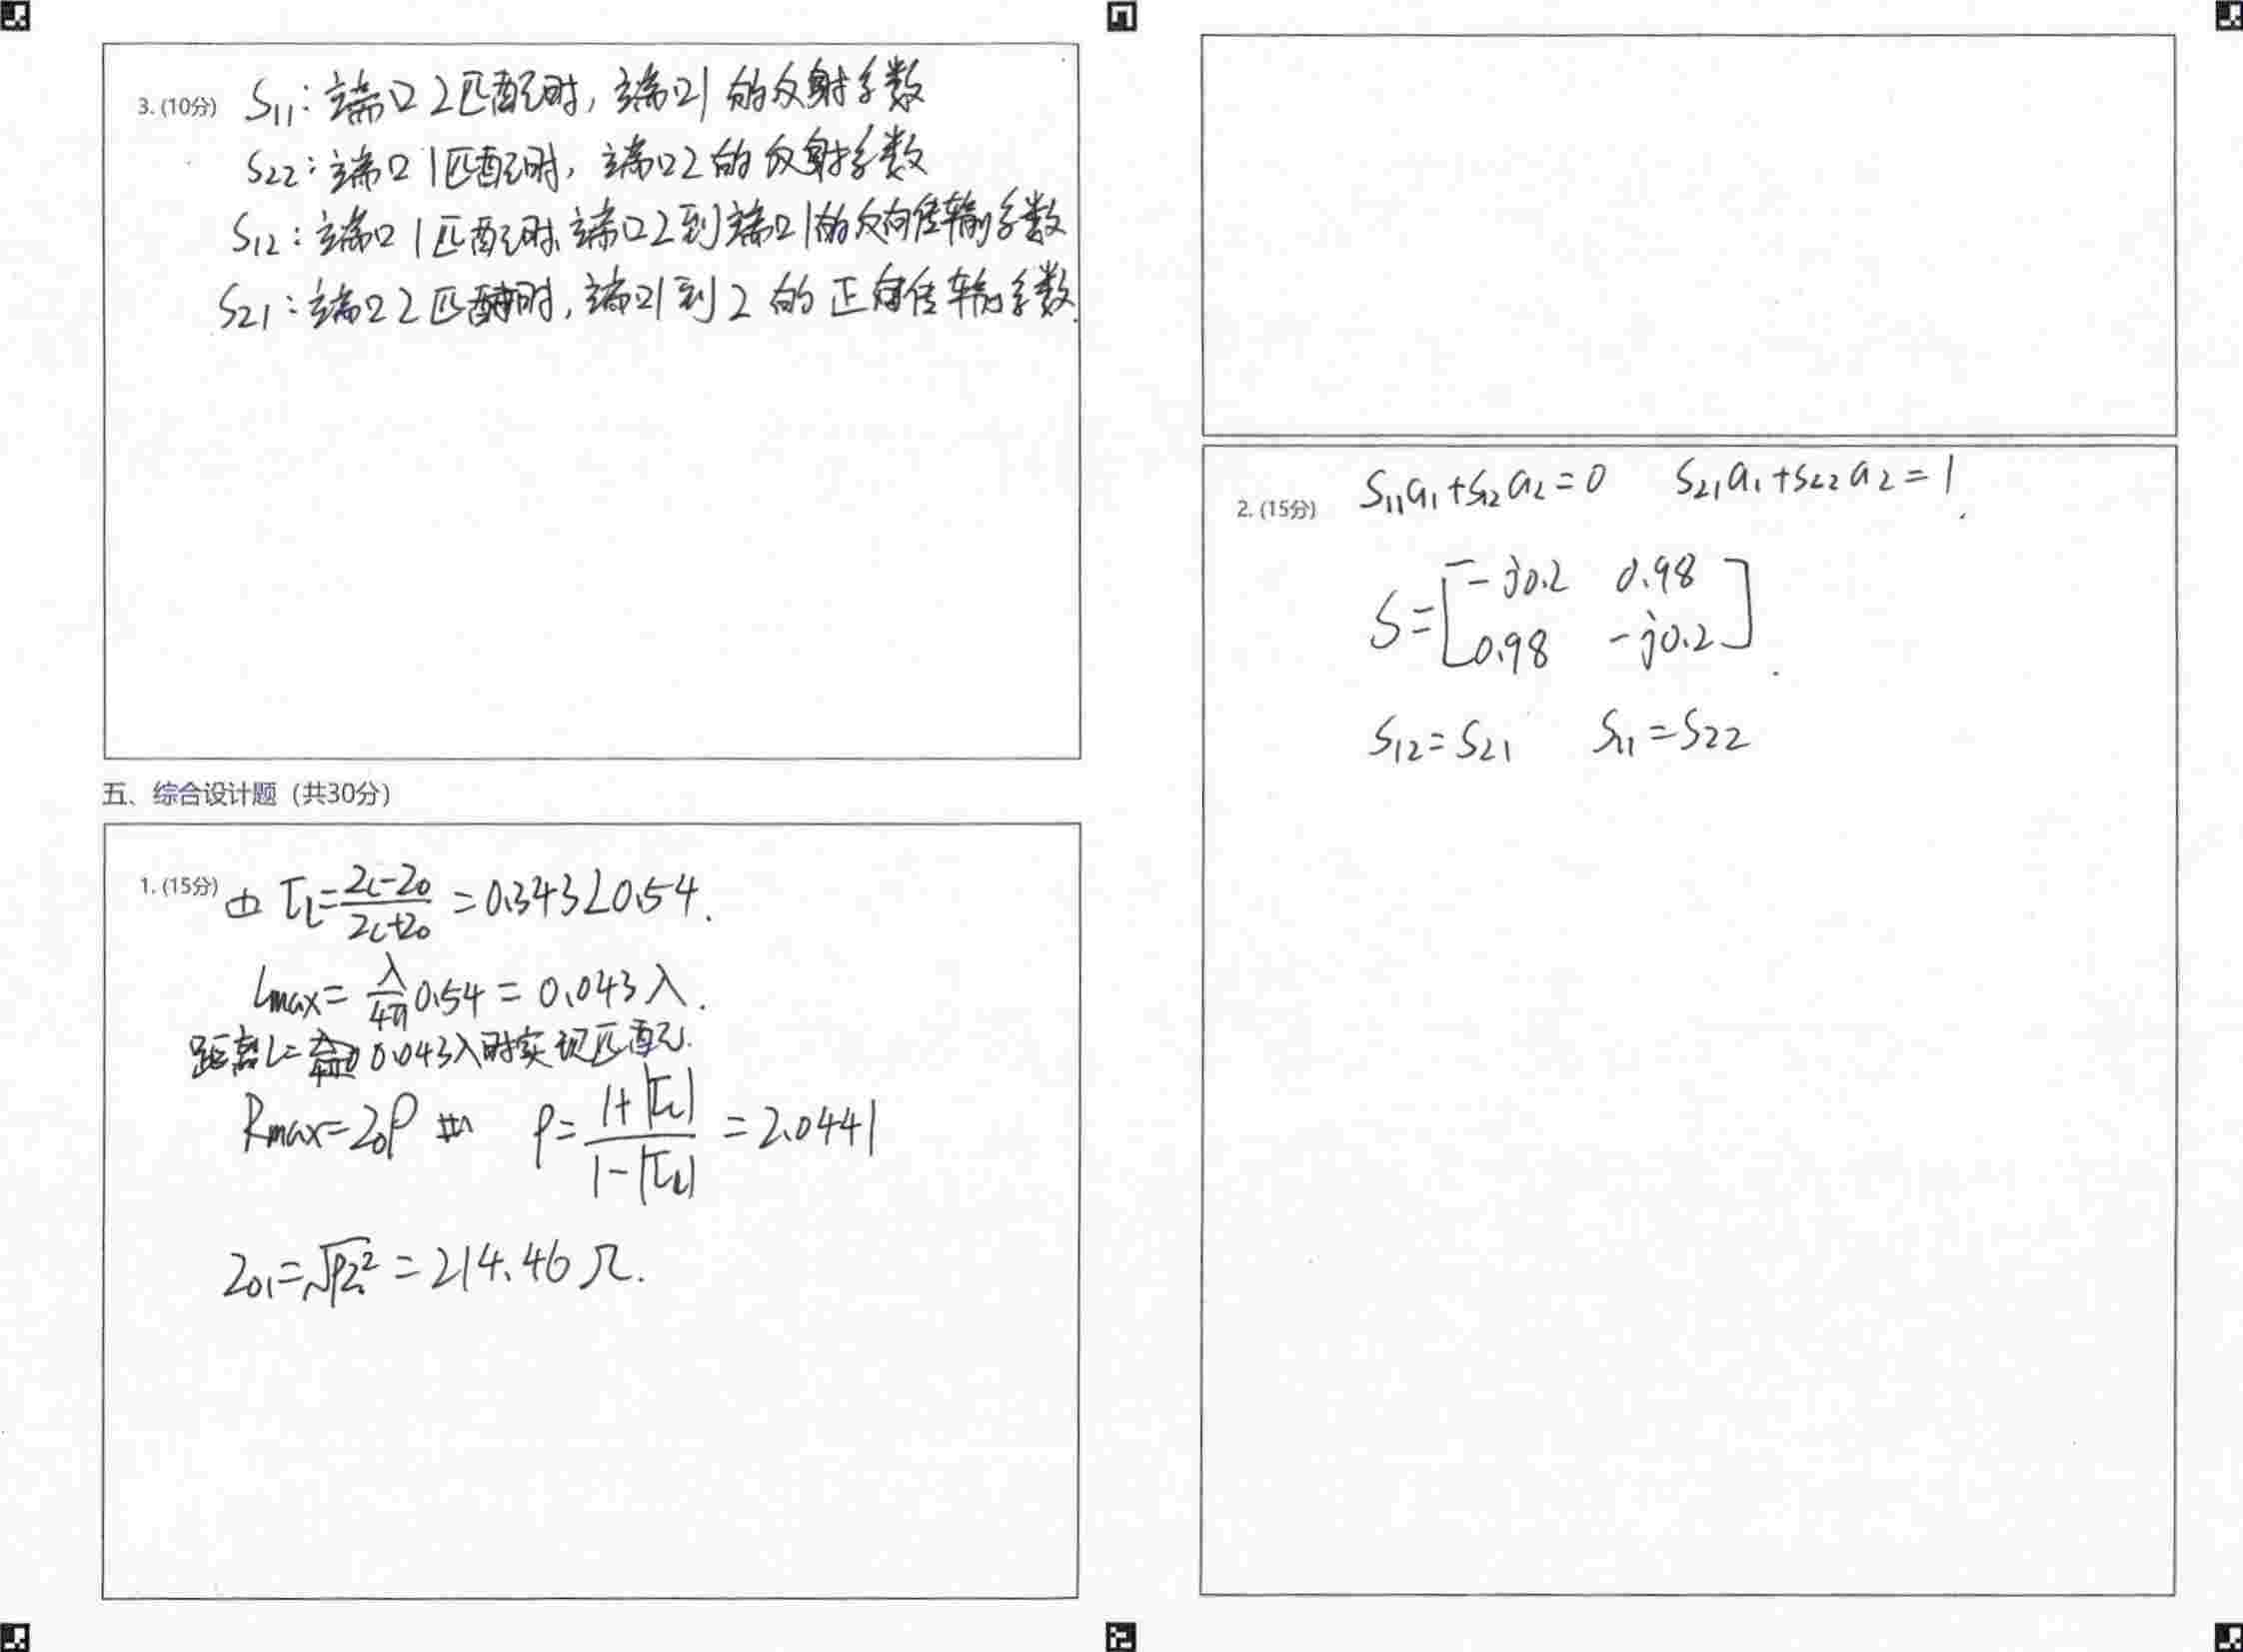 3. (10分) S11：端口2匹配时，端口1的反射系数
S22：端口1匹配时，端口2的反射系数
S12：端口1匹配时，端口2到端口1的反向传输系数
S21：端口2匹配时，端口1到2的正向传输系数.
五、综合设计题（共30分）
1. (15分) 由 ΓL=(ZL-Z0)/(ZL+Z0)=0.343∠0.54.
Lmax=λ/4π 0.54=0.043λ.
距离L=0.043λ时实现匹配.
Rmax=Z0ρ ρ=(1+|ΓL|)/(1-|ΓL|)=2.0441
Z01=√ρZ0²=214.46Ω.
2. (15分) S11a1+S12a2=0 S21a1+S22a2=1
S=[-j0.2 0.98
0.98 -j0.2]
S12=S21 S11=S22